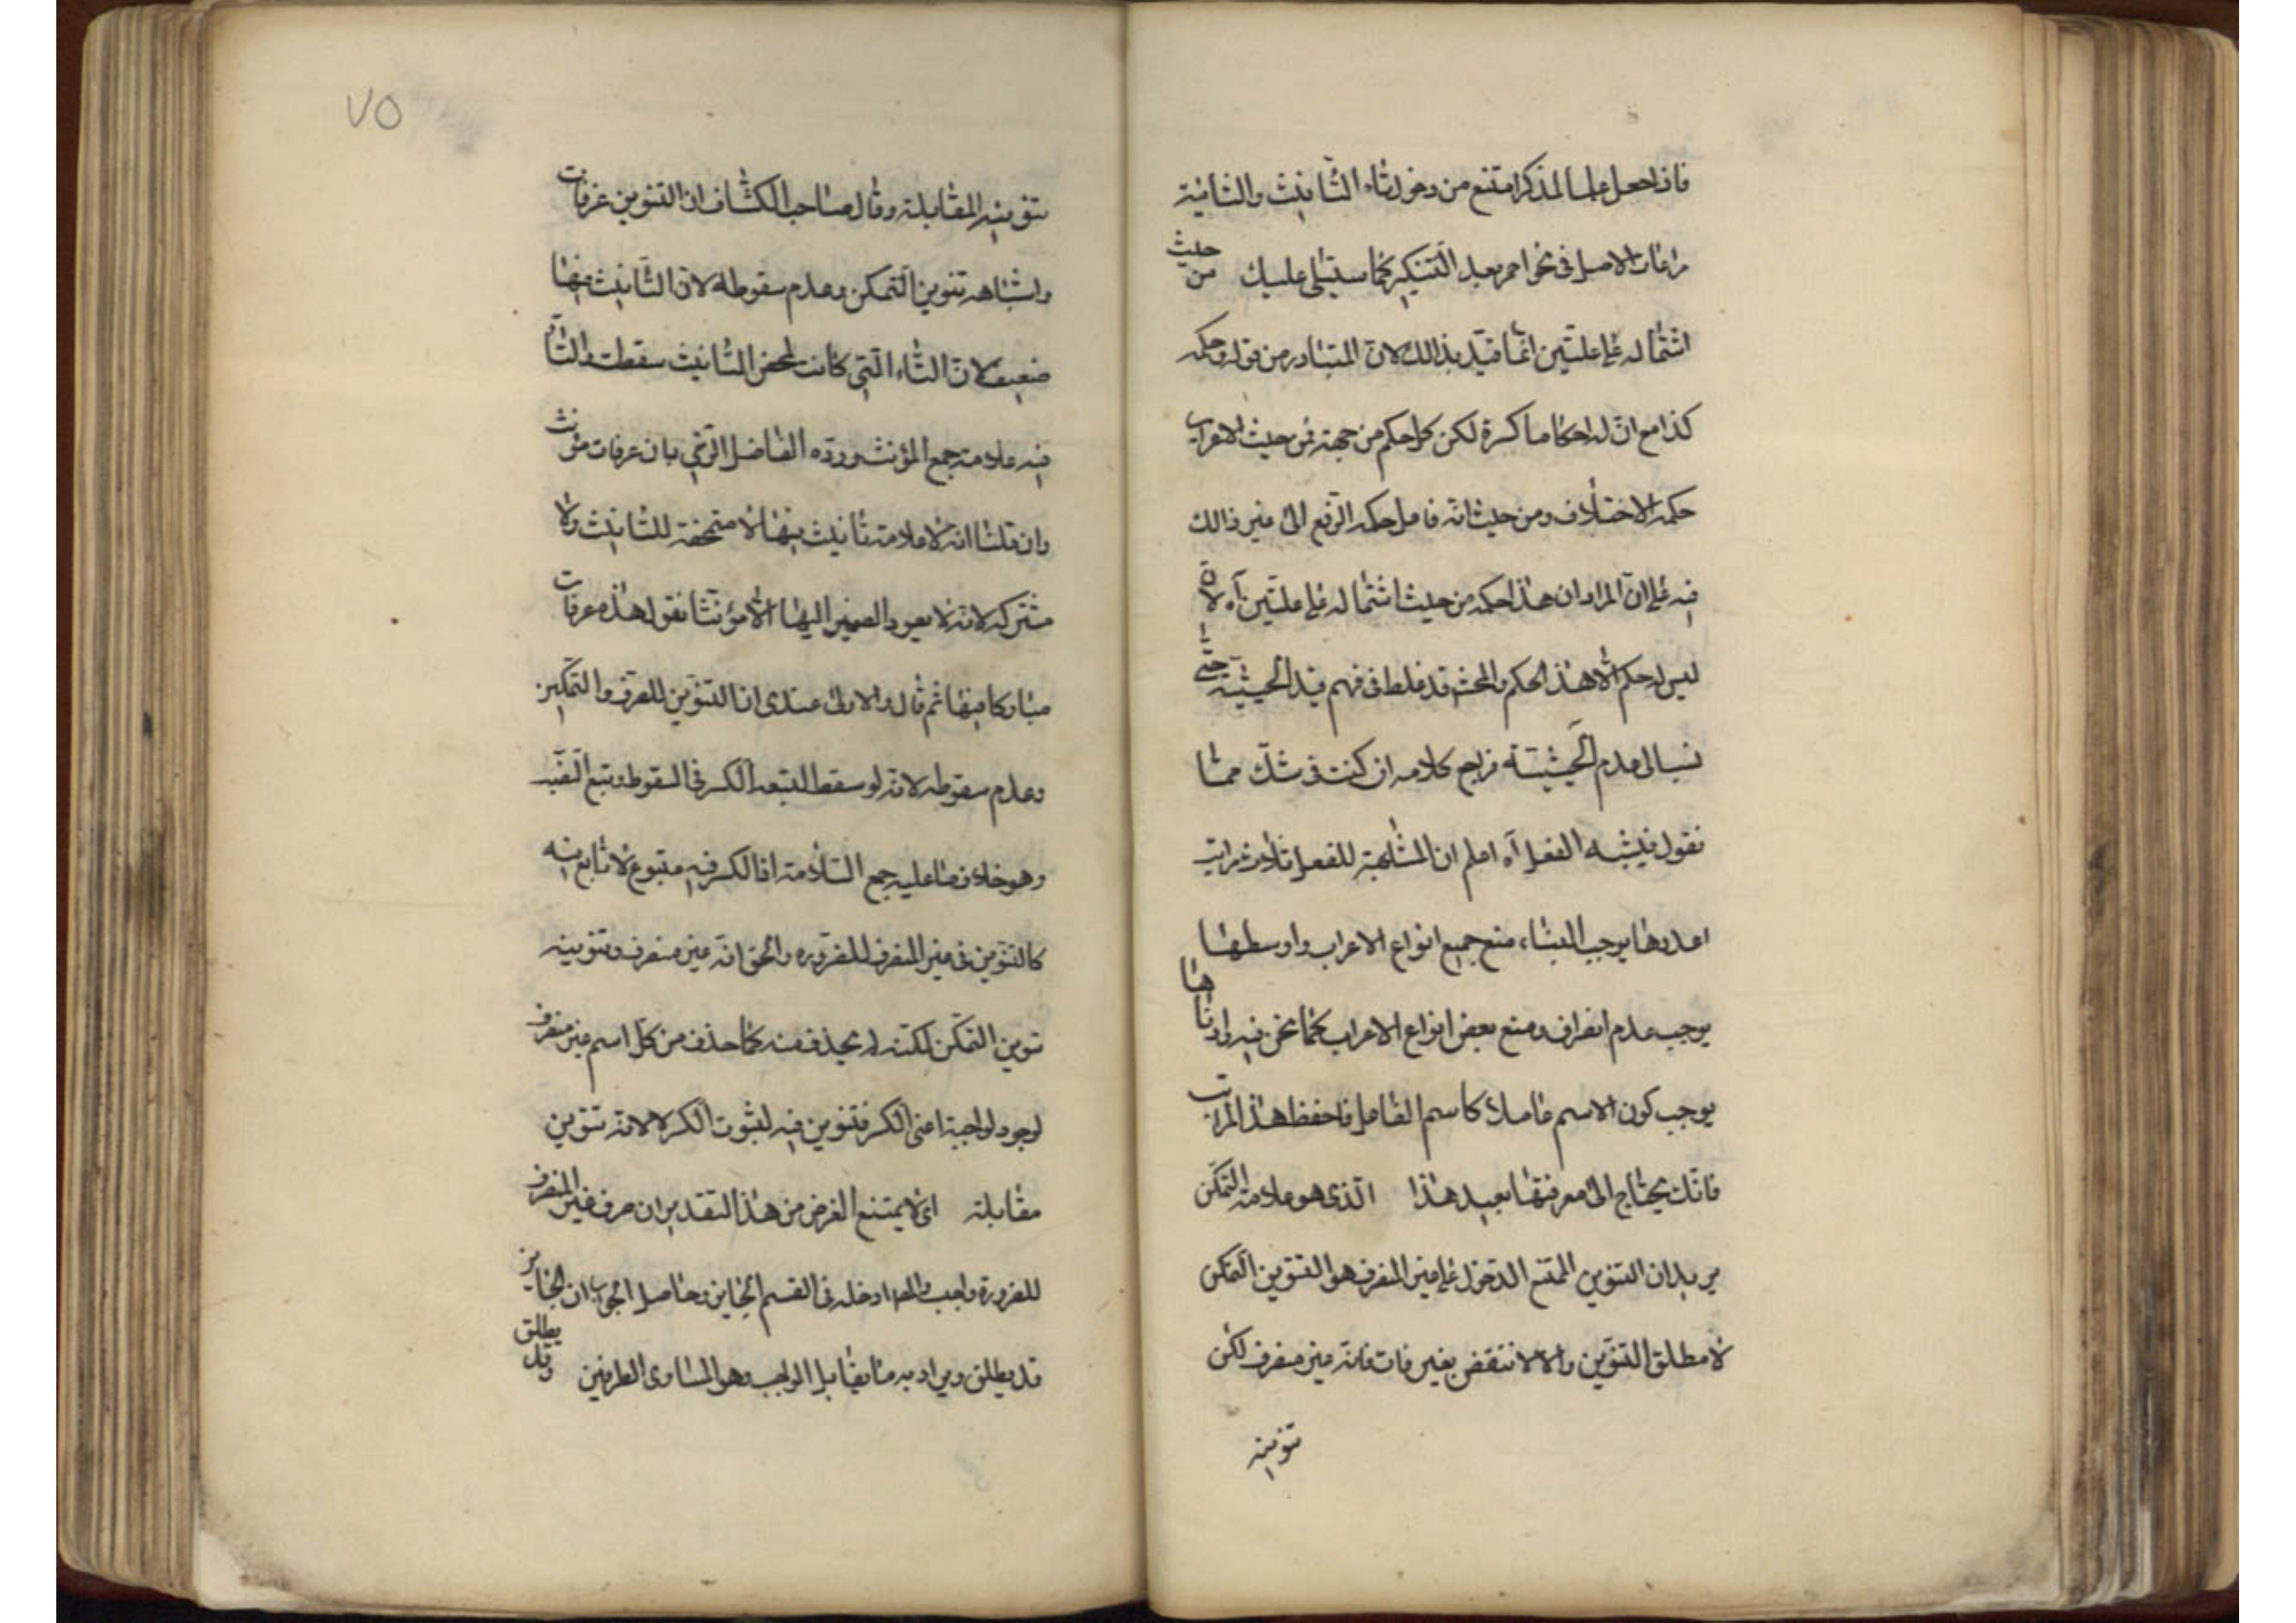 فاذا جعل علما لمذكر امتنع من دخول تاء التانيث والثانية
مراعات الاصل فى نحو احمر بعد التنكير كما سيتلى عليك من حيث
اشتماله على علتين انما قيد بذالك لان المتبادر من قوله وحكمه
كذا مع ان له احكاما كثرة لكن كل حكم من جهة فمن حيث الاعراب
حكمه الاختلاف ومن حيث انه فاعل حكمه الرفع الى غير ذالك
فيه على ان المراد ان هذا حكمه من حيث اشتماله على علتين آه لان
ليس له حكم الا هذا الحكم والمحشى قد غلط فى فهم قيد الحيثية حتى
نسب الى عدم الحيثية فراجع كلامه ان كنت فى شك مما
نقول فيشبه الفعل آه اعلم ان المشابهة للفعل ثلاث مراتب
اعلاها يوجب البناء، منع جميع انواع الاعراب واوسطها
يوجب عدم انصراف ومنع بعض انواع الاعراب كما نحن فيه وادناها
يوجب كون الاسم عاملا كاسم الفاعل فاحفظ هذا المراتب
فانك يحتاج الى معرفتها بعيد هذا الذى هو علامة التمكن
يريد ان التنوين الممتنع الدخول على غير المنصرف هو التنوين التمكن
لا مطلق التنوين والا لانتقض بعرفات فانه غير منصرف لكن
تنوينه
٧٥
تنوينه المقابلة وقال صاحب الكشاف ان التنوين عرفات
واشباهه تنوين التمكن وعدم سقوطه لان التانيث فيها
ضعيف لان التاء التى كانت لمحض التانيث سقطت والتاء
فيه علامة جمع المؤنث ورده الفاضل الرضى بان عرفات مؤنث
وان قلنا انه لا علامة تانيث فيها لا متمحضة للتانيث ولا
مشتركه لانه لا يعود الضمير اليها الا مؤنثا نقول هذه عرفات
مباركا فيها ثم قال والاولى عندى ان التنوين للصرف والتمكين
وعدم سقوطه لانه لو سقط التبعه الكسر فى السقوط وتبع النصب
وهو خلاف ما عليه جمع السلامة اذ الكسر فيه متبوع لا تابع فيه
كالتنوين فى غير المنصرف للضروره والحق انه غير منصرف وتنوينه
تنوين التمكن لكنه لم يحذف منه كما حذف من كل اسم غير منصرف
لوجود لواجبة اعنى الكسر فتنوين فيه لثبوت الكسر لا لانه تنوين
مقابلة اى لا يمتنع الغرض من هذا التقدير ان صرف غير المنصرف
للضرورة واجب والمص ادخله فى القسم الجايز وحاصل الجواب ان الجايز
قد يطلق ويراد به ما يقابل الواجب وهو المساوى الطرفين وقد يطلق